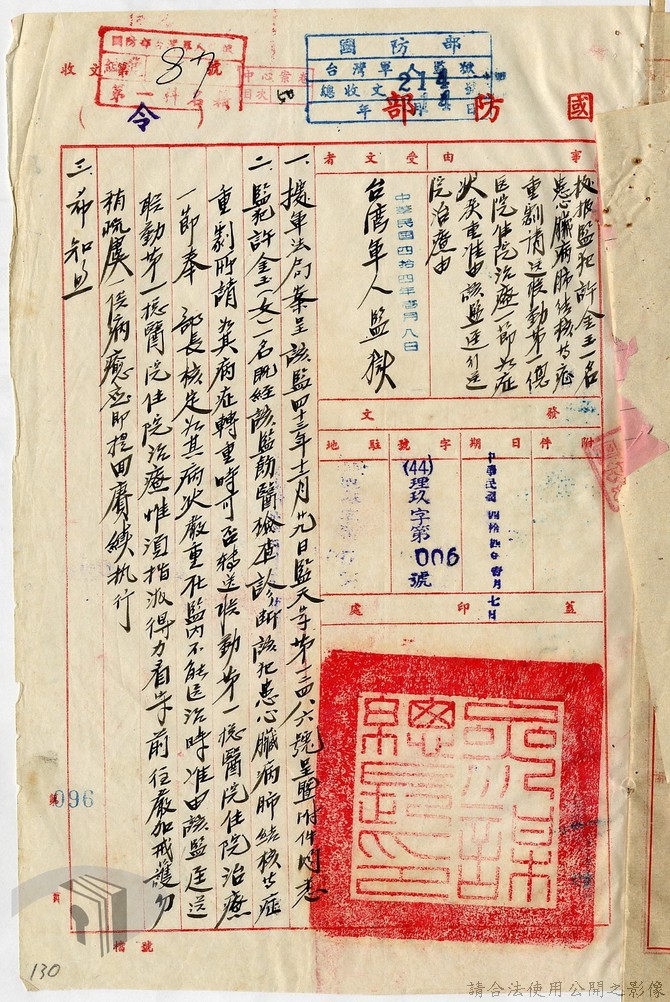 國防部
令
國防部
台灣軍人監獄
總收文 214 號
收文 第 87 號
第一科
中心業卷
目次 50
事由
據報監犯許金玉一名
患心臟病肺結核等症
重劇請送聯勤第一總
醫院住院治療一節如症
狀嚴重准由該監逕行送
院治療由
受文者
台灣軍人監獄
中華民國四拾四年壹月八日
發文
附件
日期
中華民國四拾四年壹月七日
字號
(44)理玖字第006號
駐地
蓋印處
參謀總長之印
一、據軍法局案呈該監四十三年十二月廿九日監天字第二四八六號呈暨附件均悉
二、監犯許金玉(女)一名既經該監飭醫檢查診斷該犯患心臟病肺結核等症
重劇所請於其病症轉重時可否轉送聯勤第一總醫院住院治療
一節奉 部長核定於其病狀嚴重在監內不能醫治時准由該監逕送
聯勤第一總醫院住院治療惟須指派得力看守前往嚴加戒護勿
稍疏虞一俟病癒應即提回賡續執行
三、希知照
096
檔號
130
請合法使用公開之影像